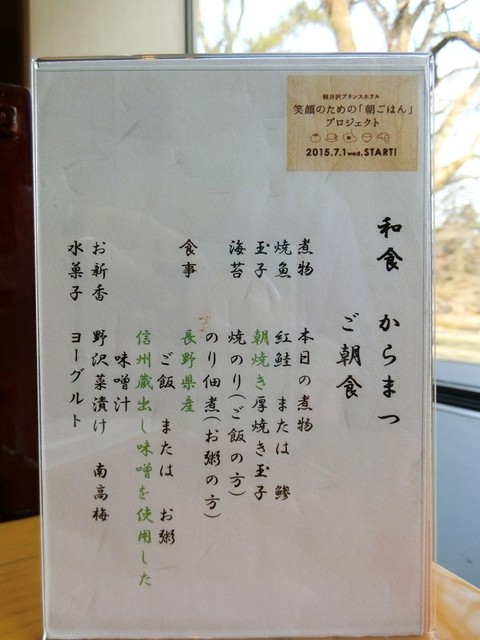 軽井沢プリンスホテル
笑顔のための「朝ごはん」
プロジェクト
2015.7.1wed.START!
和食　からまつ
ご朝食
煮物　本日の煮物
焼魚　紅鮭　または　鯵
玉子　朝焼き厚焼き玉子
海苔　焼のり(ご飯の方)
のり佃煮(お粥の方)
食事　長野県産
ご飯　または　お粥
信州蔵出し味噌を使用した
味噌汁
お新香　野沢菜漬け　南高梅
水菓子　ヨーグルト